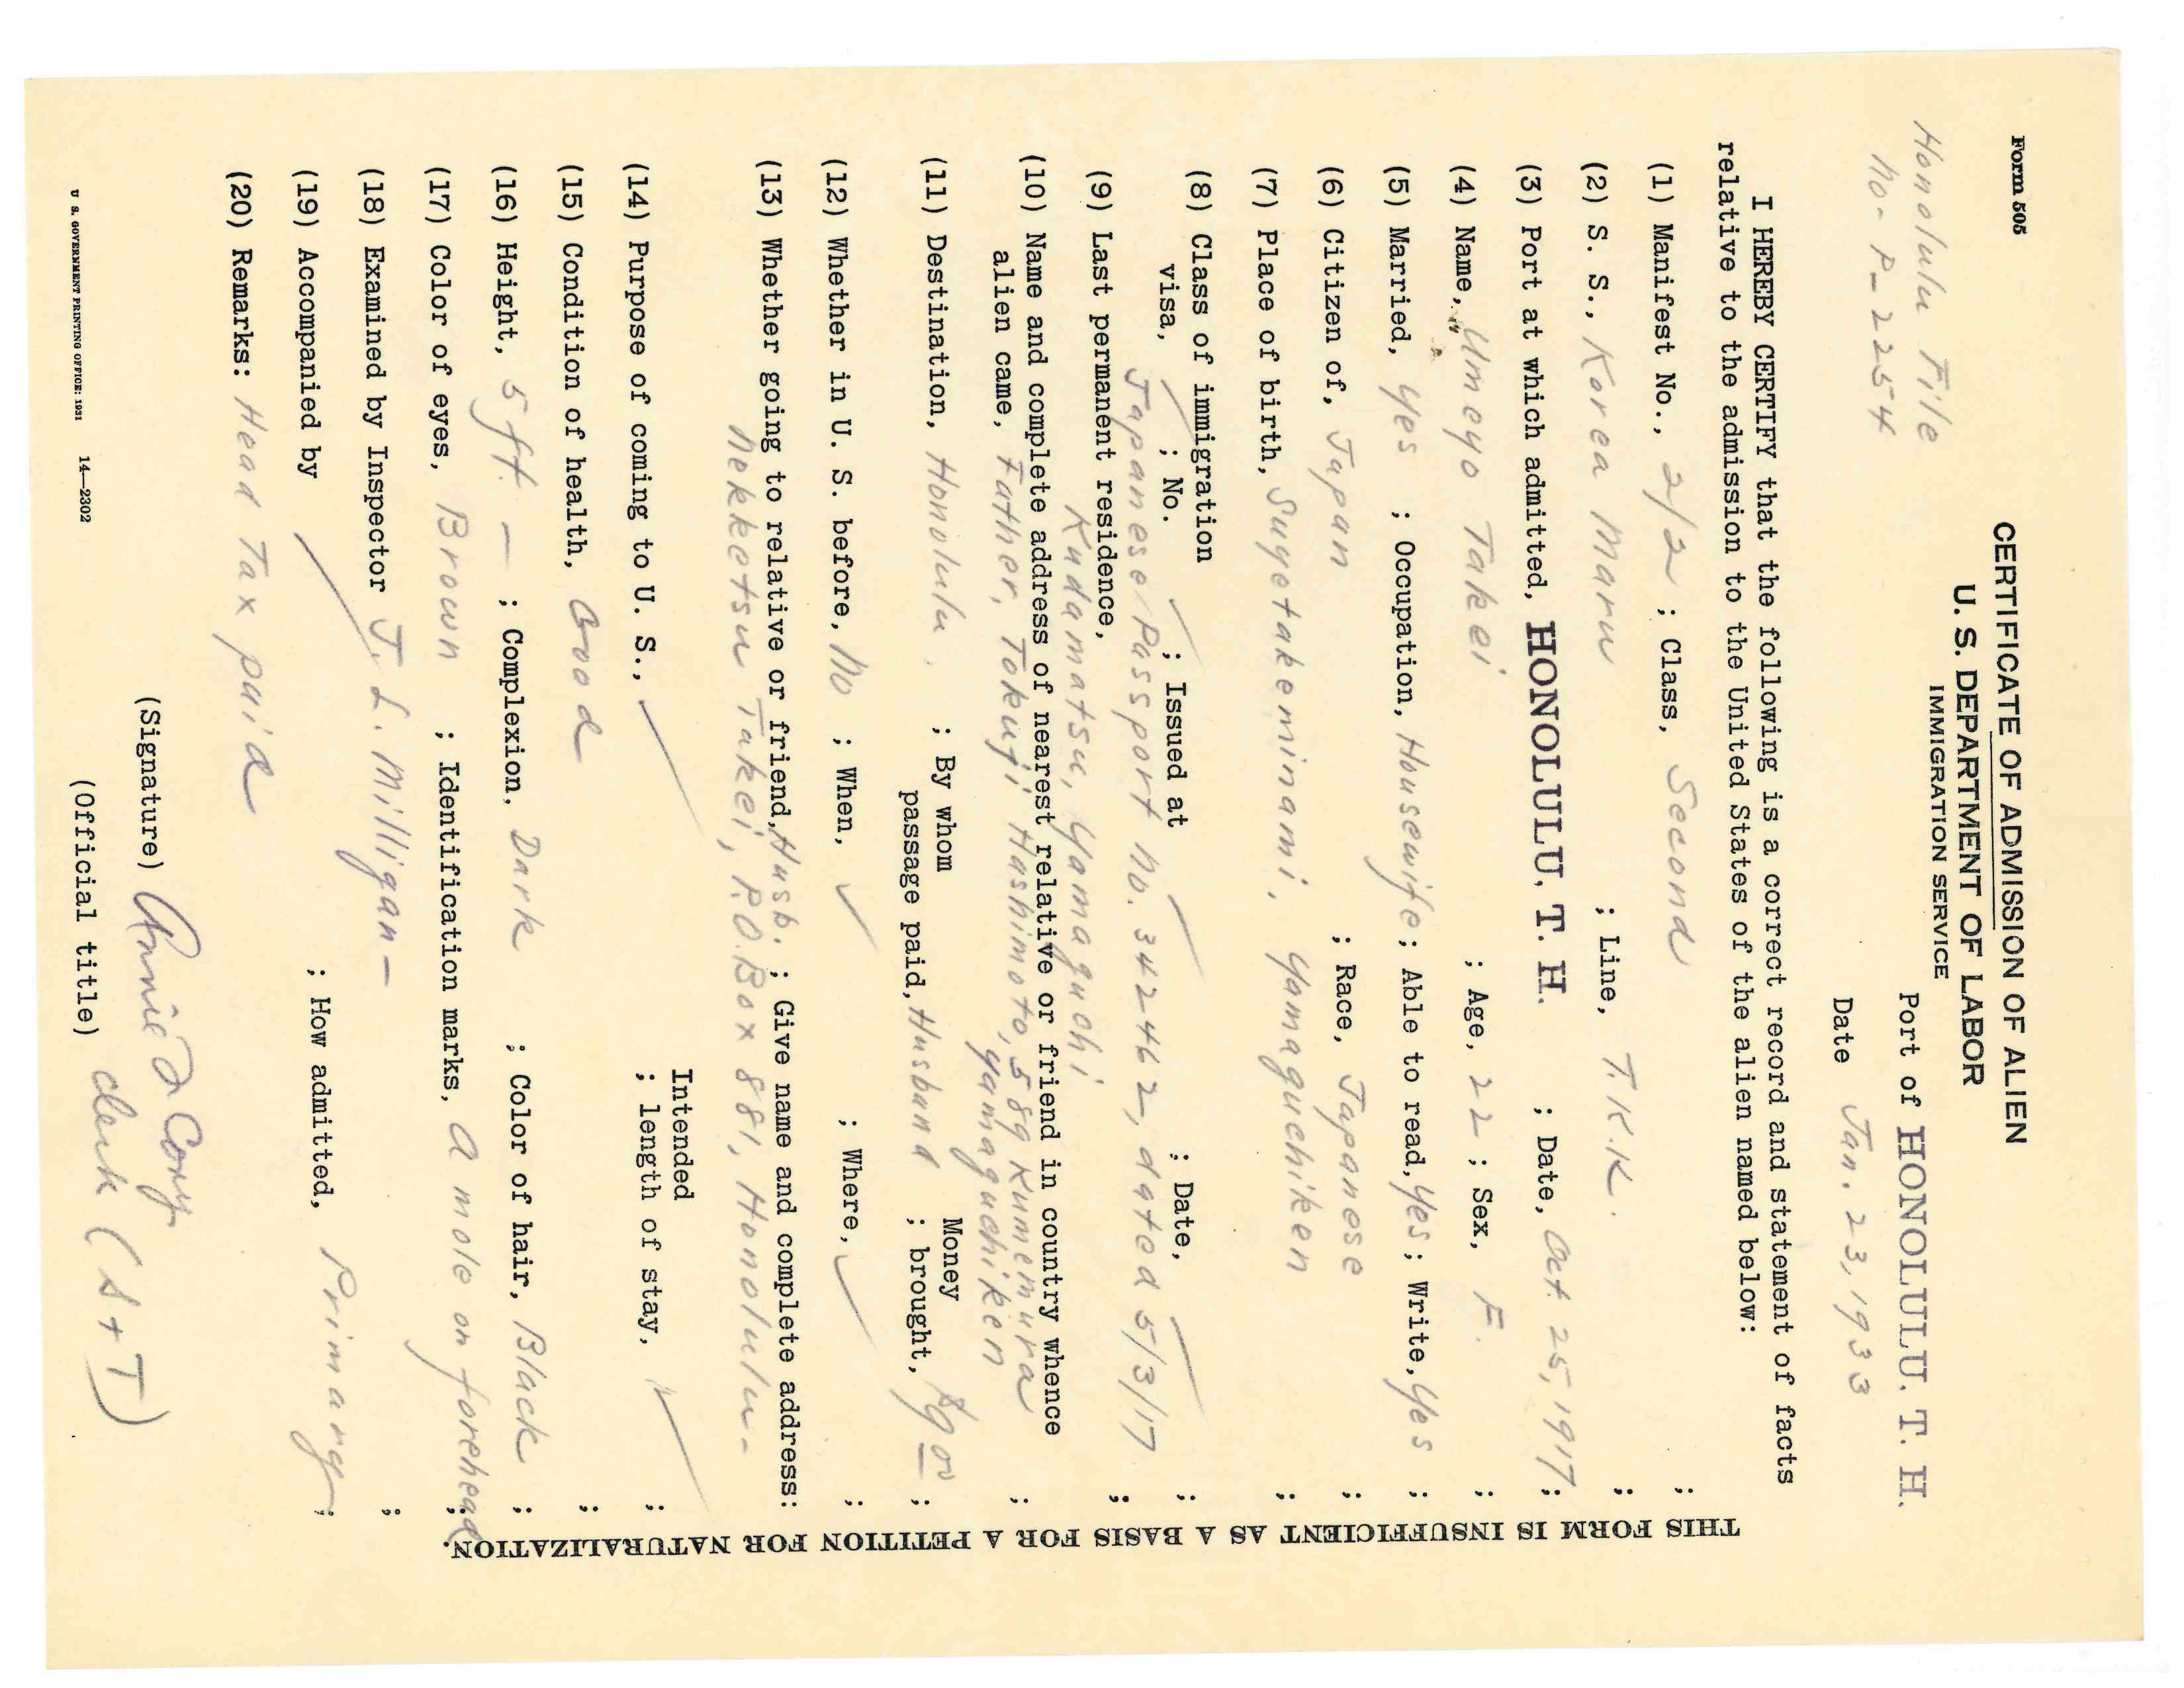 Form 505
CERTIFICATE OF ADMISSION OF ALIEN
U. S. DEPARTMENT OF LABOR
IMMIGRATION SERVICE
Honolulu File
no- P-2254
Port of HONOLULU, T. H.
Date Jan. 23, 1933
I HEREBY CERTIFY that the following is a correct record and statement of facts
relative to the admission to the United States of the alien named below:
(1) Manifest No., 2/2 ; Class, Second ;
(2) S. S., Korea Maru ; Line, T.K.K. ;
(3) Port at which admitted, HONOLULU, T. H. ; Date, Oct. 25, 1917;
(4) Name, Umeyo Takei ; Age, 22 ; Sex, F. ;
(5) Married, Yes ; Occupation, Housewife; Able to read, Yes; Write, Yes ;
(6) Citizen of, Japan ; Race, Japanese ;
(7) Place of birth, Suyetakeminami, Yamaguchiken ;
(8) Class of immigration
visa, ; No. ; Issued at ; Date, ;
Japanese Passport no. 342462, dated 5/3/17
(9) Last permanent residence, ;
Kudamatsu, Yamaguchi
(10) Name and complete address of nearest relative or friend in country whence
alien came, Father, Tokuji Hashimoto, 589 Kumemura ;
Yamaguchiken
(11) Destination, Honolulu ; By whom Money
passage paid, Husband ; brought, $9 00 ;
(12) Whether in U. S. before, No ; When, ✓ ; Where, ✓ ;
(13) Whether going to relative or friend, Husb. ; Give name and complete address:
Nekketsu Takei, P.O. Box 881, Honolulu-
Intended
(14) Purpose of coming to U. S., ; length of stay, ;
(15) Condition of health, Good ;
(16) Height, 5 ft. — ; Complexion, Dark ; Color of hair, Black ;
(17) Color of eyes, Brown ; Identification marks, A mole on forehead. ;
(18) Examined by Inspector J. L. Milligan — ;
(19) Accompanied by ; How admitted, Primary ;
(20) Remarks: Head Tax paid
(Signature) Annie Cory
(Official title) clerk (S+T)
U S. GOVERNMENT PRINTING OFFICE: 1931 14—2302
THIS FORM IS INSUFFICIENT AS A BASIS FOR A PETITION FOR NATURALIZATION.